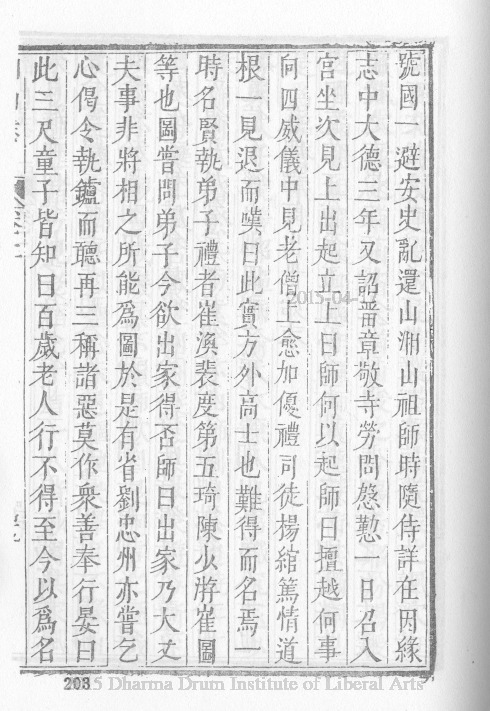 號國一避安史亂還山湘山祖師時隨侍詳在因緣
志中大德三年又詔晉章敬寺勞問慇懃一日召入
宮坐次見上出起立上曰師何以起師曰擅越何事
向四威儀中見老僧上愈加優禮司徒楊綰篤情道
根一見退而嘆曰此實方外高士也難得而名焉一
時名賢執弟子禮者崔渙裴度第五琦陳少游崔圖
等也圖嘗問弟子今欲出家得否師曰出家乃大丈
夫事非將相之所能爲圖於是有省劉忠州亦嘗乞
心偈令執鑪而聽再三稱諸惡莫作衆善奉行晏曰
此三尺童子皆知曰百歲老人行不得至今以爲名
203
5 Dharma Drum Institute of Liberal Arts
2015-04-